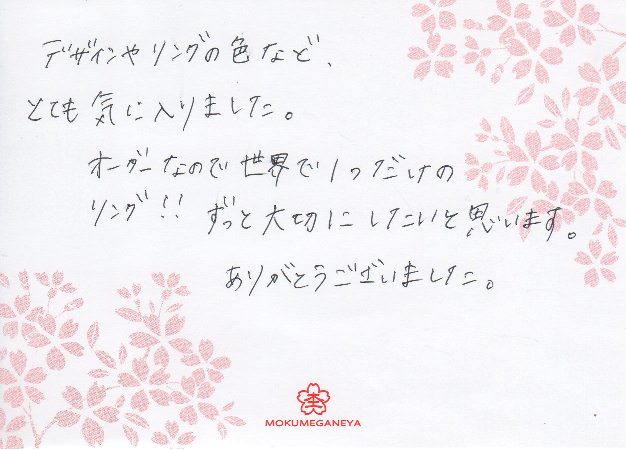 デザインやリングの色など、
とても気に入りました。
オーダーなので世界で1つだけの
リング!! ずっと大切にしたいと思います。
ありがとうございました。
MOKUMEGANEYA